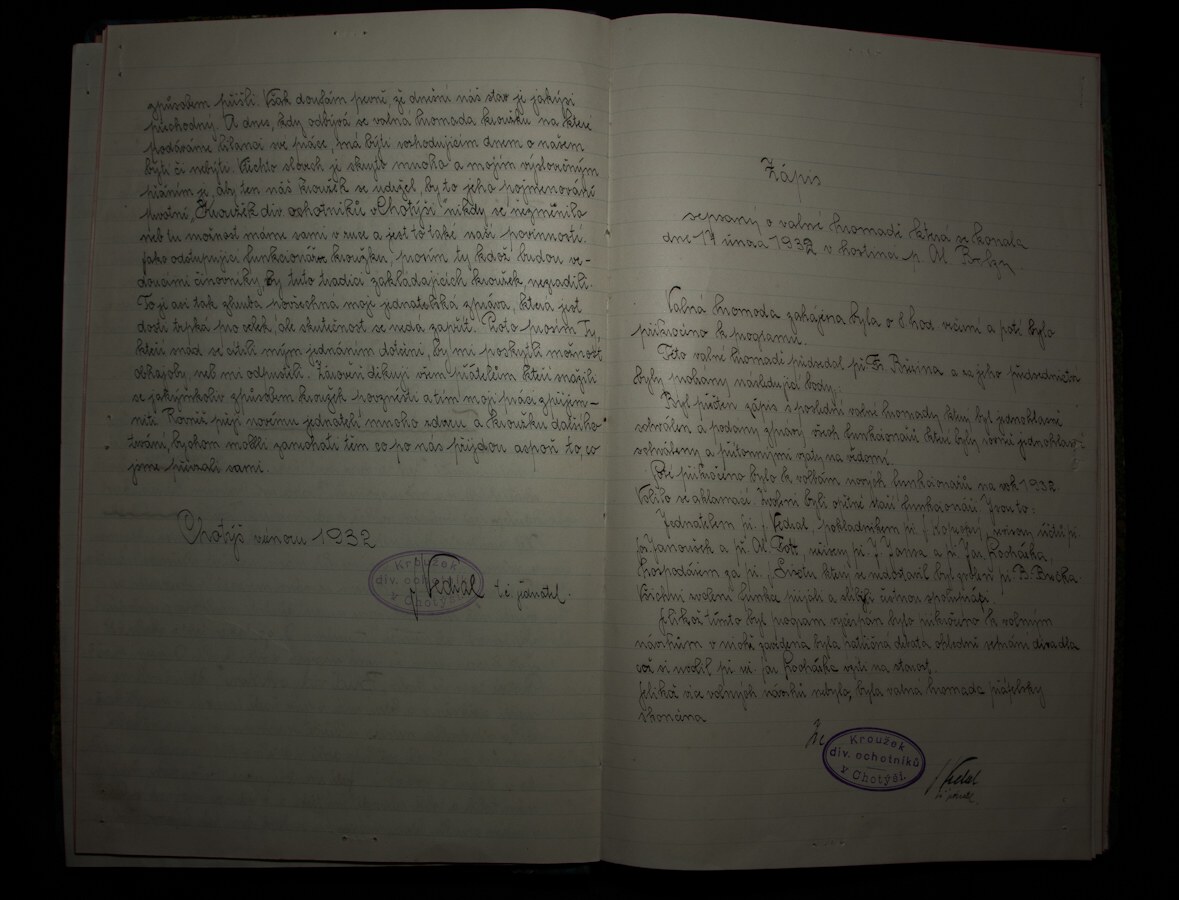 způsobem přišli. Však doufám pevně, že dnešní náš stav je jakýsi
přechodný. A dnes, kdy odbývá se valná hromada kroužku na které
podáváme bilanci své práce, má býti rozhodujícím dnem o našem
býti či nebýti. Těchto slovech je skryto mnoho a mojím výslovným
přáním je, aby ten náš kroužek se udržel, by to jeho pojmenování
prvotní, „Kroužek div. ochotníků v Chotýši" nikdy se nezměnilo
neb tu možnost máme sami v ruce a jest to také naší povinností.
Jako odstupující funkcionář kroužku, prosím ty kdož budou ve-
doucími činovníky, by tuto tradici zakládajících kroužek, nezradili.
To je asi tak zhruba povšechná moje jednatelská zpráva, která jest
dosti trpká pro celek, ale skutečnost se nedá zapříti. Proto prosím Ty,
kteří snad se cítili mým jednáním dotčeni, by mi poskytli možnost
obhajoby, neb mi odpustili. Zároveň děkuji všem přátelům kteří snažili
se jakýmkoliv způsobem kroužek povznésti a tím moji práci zpříjem-
niti. Rovněž přeji novému jednateli mnoho zdaru a kroužku dalšího
trvání, bychom mohli zanechati těm co po nás přijdou aspoň to, co
jsme přivzali sami.
Chotýš v únoru 1932
Kroužek
div. ochotníků
v Chotýši.
J Vedral t. č. jednatel.
Zápis
sepsaný o valné hromadě která se konala
dne 14 února 1932 v hostinci p. Al.
Valná hromada zahájena byla o 8 hod večerní a poté bylo
přikročeno k programu.
Této valné hromadě předsedal př. Fr. Březina a za jeho předsednictví
byly probrány následující body:
Byl přečten zápis z poslední valné hromady který byl jednohlasně
schválen a podány zprávy všech funkcionářů které byly rovněž jednohlasně
schváleny a přítomnými vzaty na vědomí.
Poté přikročeno bylo k volbám nových funkcionářů na rok 1932.
Volilo se aklamací. Zvoleni byli opětně staří funkcionáři. Jsou to:
Jednatelem př. J. Vedral, pokladníkem př. J. revisory účtů př.
Jar. Janoušek a př. Al. Fot, př. J. a př. Jar. Kochánka,
hospodářem za př. který se nedostavil byl zvolen př. B.
Všichni zvolení funkce přijali a slíbili účinnou spolupráci.
Jelikož tímto byl program vyčerpán bylo přikročeno k volným
návrhům v nichž zavedena byla debata ohledně sehrání divadla
což si vzal př. Jar. Kochánka vzíti na starost.
Jelikož více volných návrhů nebylo, byla valná hromada přátelsky
skončena
Za
Kroužek
div. ochotníků
v Chotýši.
J Vedral
t. č. jednatel.